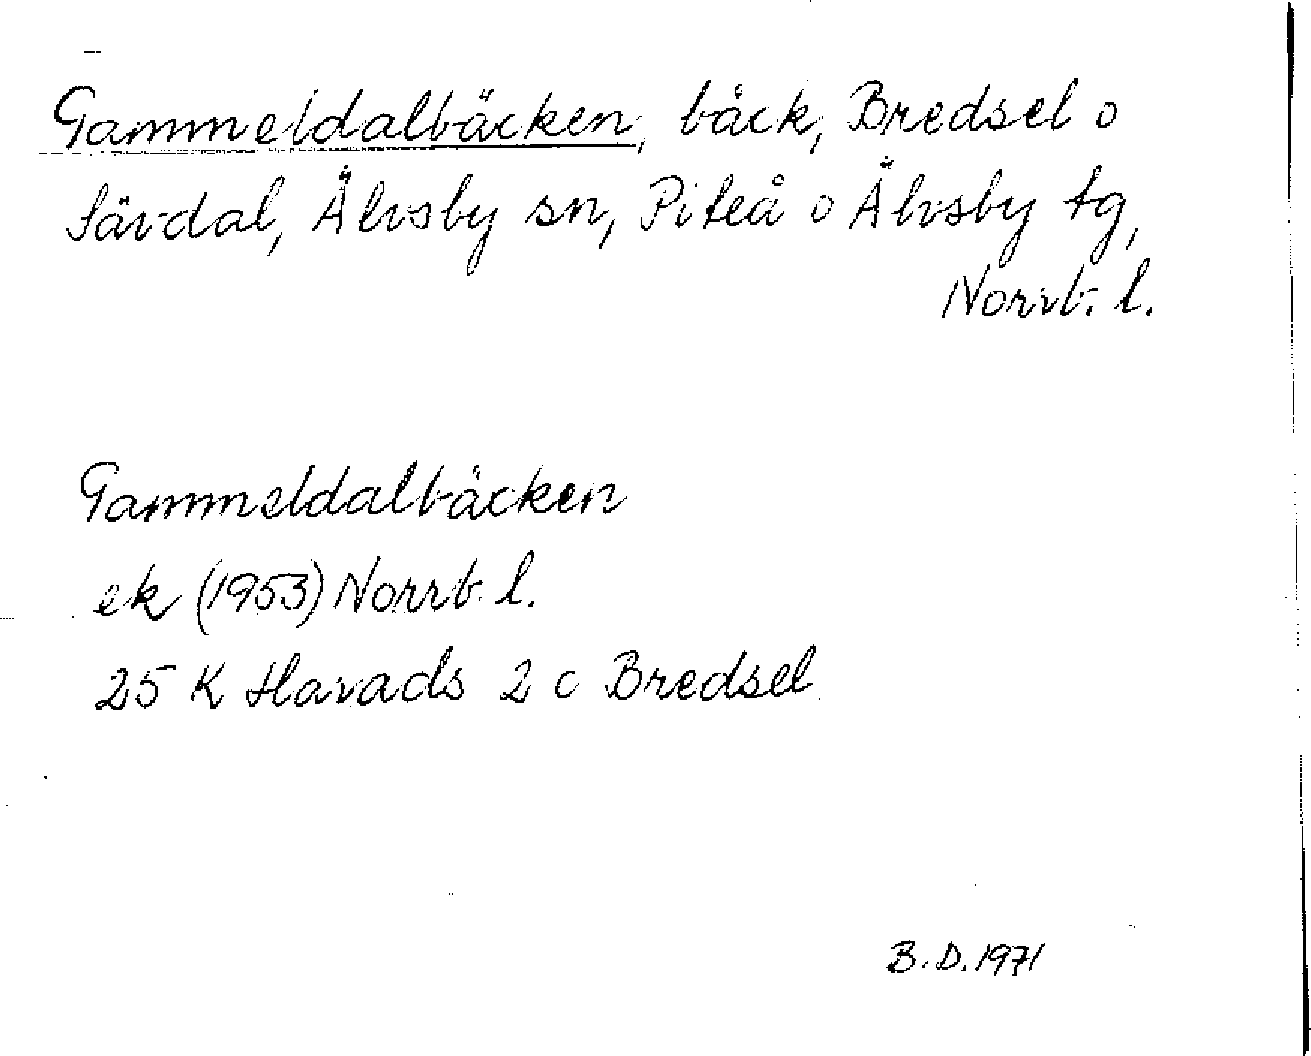 Gammeldalbäcken, bäck, Bredsel o
Sävdal, Älvsby sn, Piteå o Älvsby tg,
Norrb. l.
Gammeldalbäcken
ek (1953) Norrb. l.
25 K Harads 2 c Bredsel
B. D. 1971